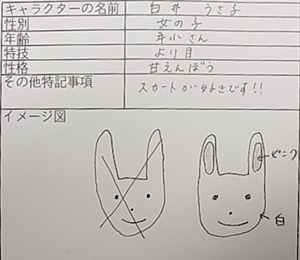 キャラクターの名前 白井 うさ子
性別 女の子
年齢 年小さん
特技 より目
性格 甘えんぼう
その他特記事項 スカートが好きです!!
イメージ図
ピンク
白